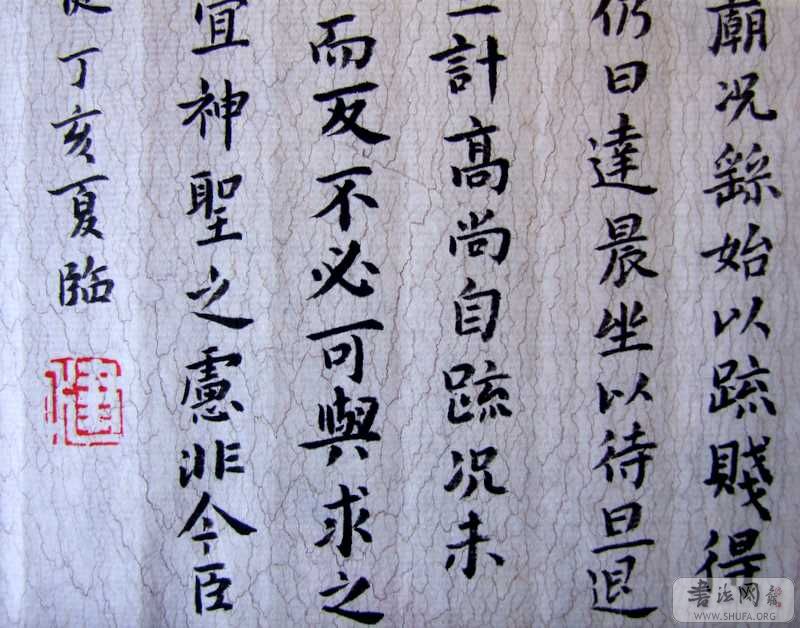 廟況繇始以疏賤得
仍日達晨坐以待旦退
計高尚自疏況未
而反不必可與求之
宜神聖之慮非今臣
丁亥夏臨
書法网
WWW.SHUFA.ORG